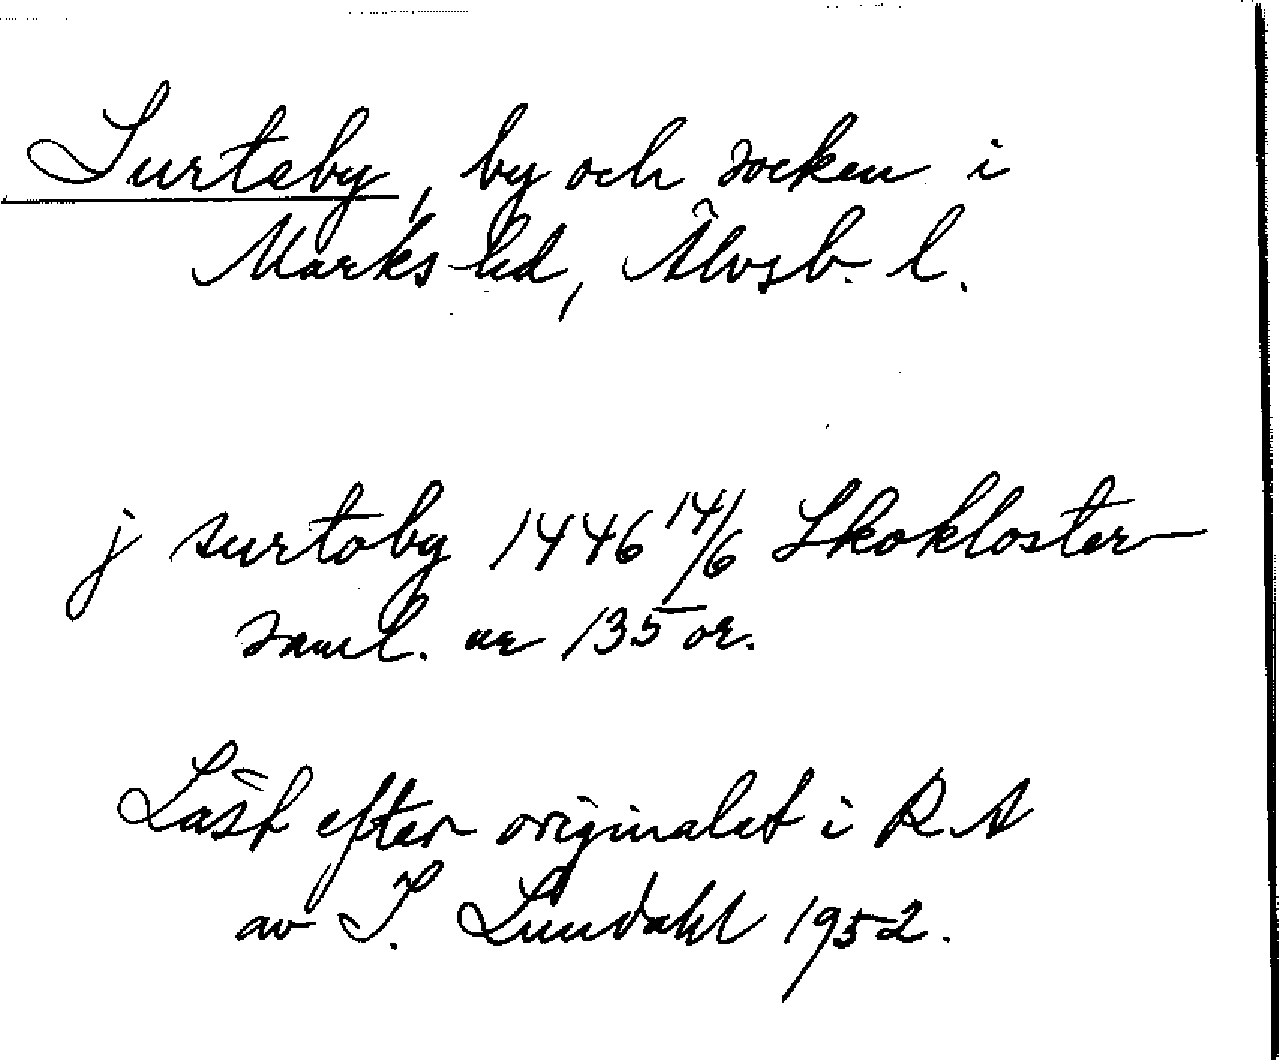 Surteby, by och socken i
Marks hd, Älvsb. l.
j surtoby 1446 14/6 Skokloster
saml. nr 135 or.
Läst efter originalet i RA
av I. Lundahl 1952.